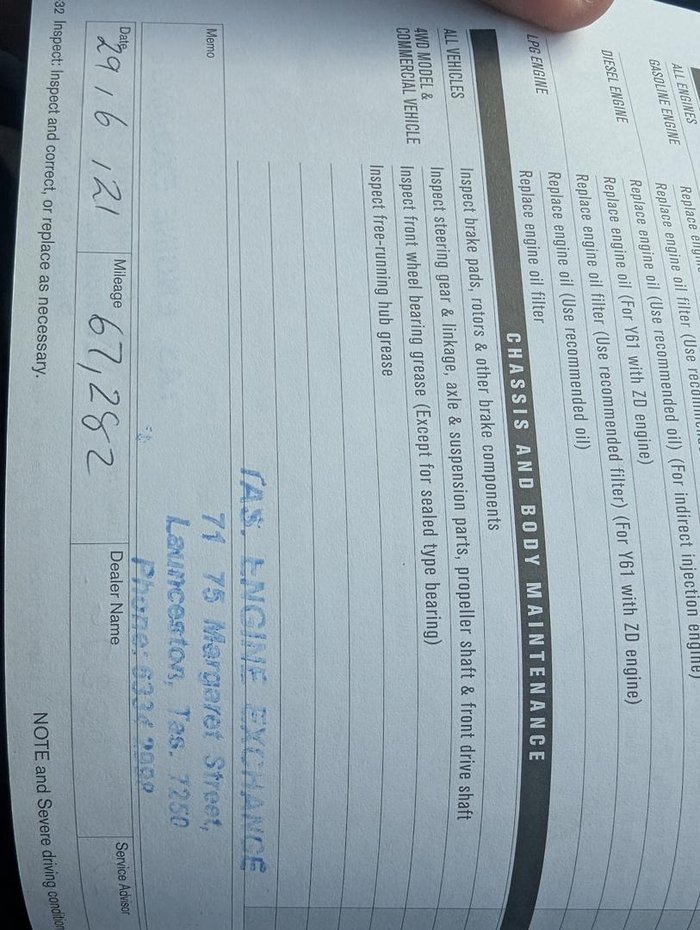 ALL ENGINES
GASOLINE ENGINE Replace engine oil filter (Use
Replace engine oil (Use recommended oil) (For indirect injection engine)
DIESEL ENGINE Replace engine oil (For Y61 with ZD engine)
Replace engine oil filter (Use recommended filter) (For Y61 with ZD engine)
Replace engine oil (Use recommended oil)
LPG ENGINE Replace engine oil filter
CHASSIS AND BODY MAINTENANCE
ALL VEHICLES Inspect brake pads, rotors & other brake components
Inspect steering gear & linkage, axle & suspension parts, propeller shaft & front drive shaft
4WD MODEL & Inspect front wheel bearing grease (Except for sealed type bearing)
COMMERCIAL VEHICLE Inspect free-running hub grease
TAS. ENGINE EXCHANGE
Memo 71 75 Margaret Street,
Launceston, Tas. 7250
Phone:
Date Mileage Dealer Name Service Advisor
29/6/21 67,282
32 Inspect: Inspect and correct, or replace as necessary. NOTE and Severe driving condition